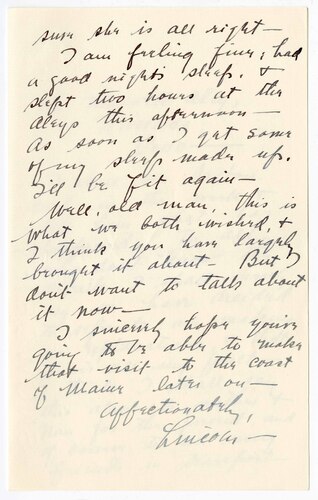 sure she is all right—
I am feeling fine; had
a good night's sleep, &
slept two hours at the
this afternoon—
As soon as I get some
of my sleep made up,
I'll be fit again—
Well, old man, this is
what we both wished, &
I think you have largely
brought it about— But I
don't want to talk about
it now—
I sincerely hope you're
going to be able to make
that visit to the coast
of Maine later on—
Affectionately,
Lincoln—